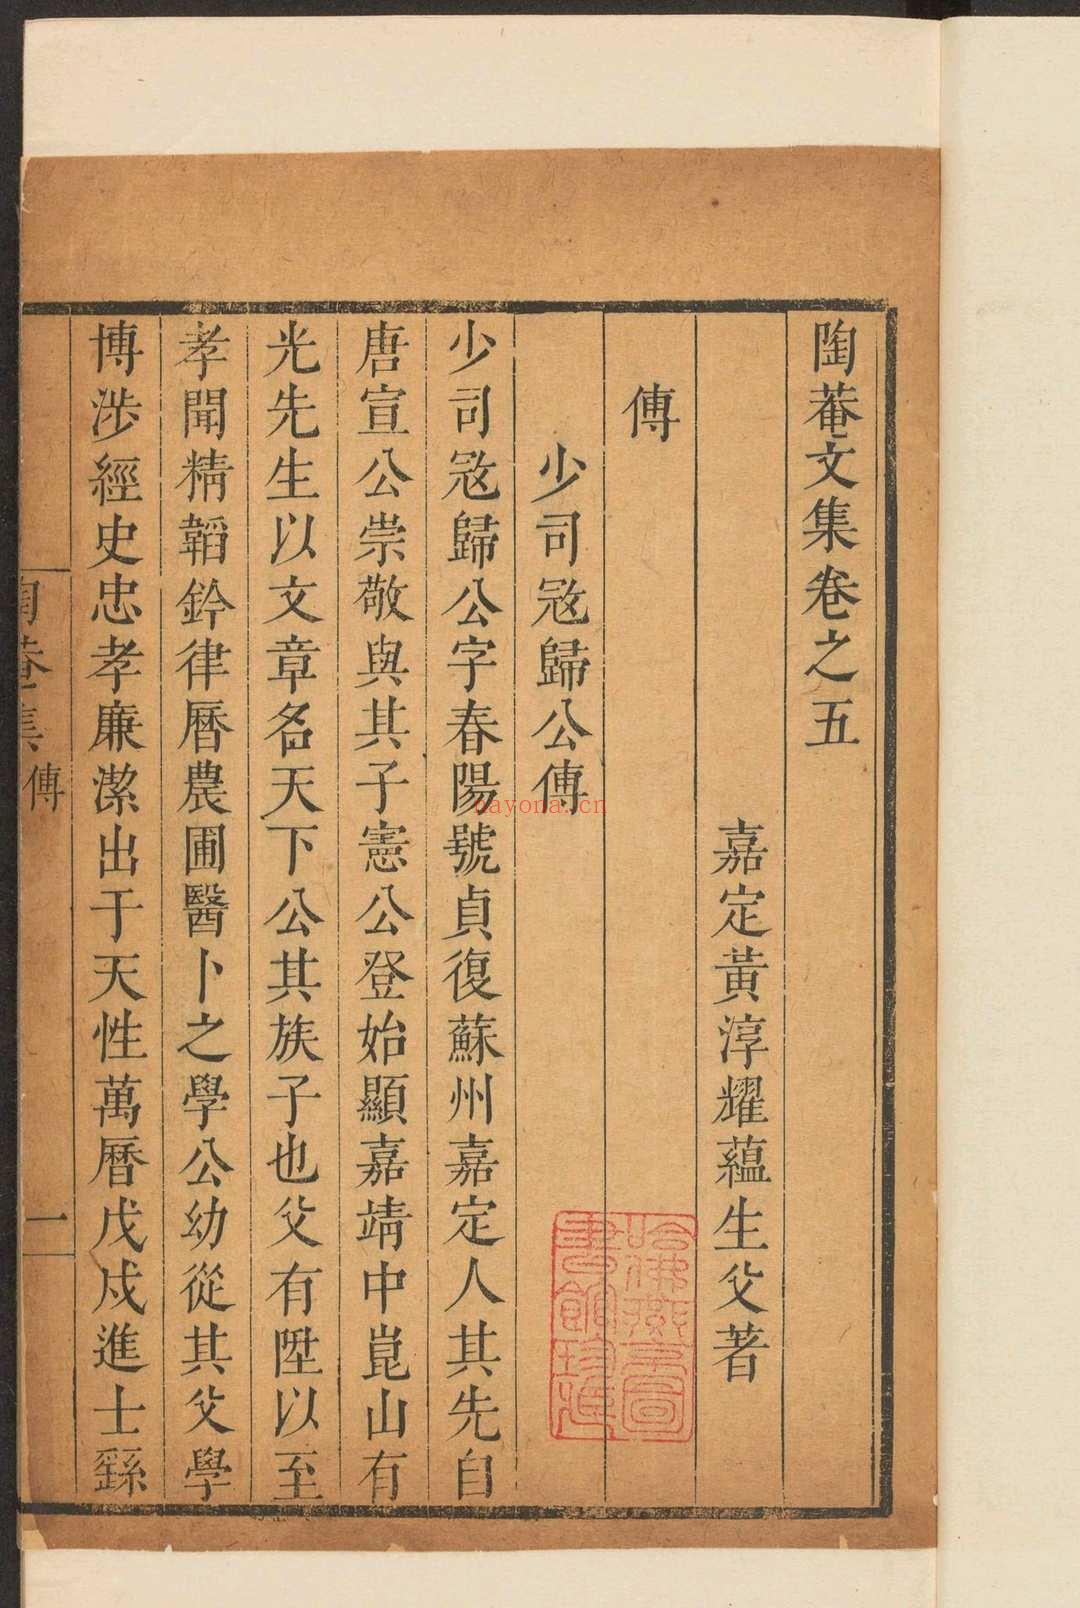 陶菴文集卷之五
嘉定黃淳耀蘊生父著
傳
少司寇歸公傳
少司寇歸公字春陽號貞復蘇州嘉定人其先自
唐宣公崇敬與其子憲公登始顯嘉靖中崑山有
光先生以文章名天下公其族子也父有陞以至
孝聞精韜鈐律曆農圃醫卜之學公幼從其父學
博涉經史忠孝廉潔出于天性萬曆戊戌進士繇
陶菴集 傳 一
哈佛燕京圖
書館珍藏
nayona.cn